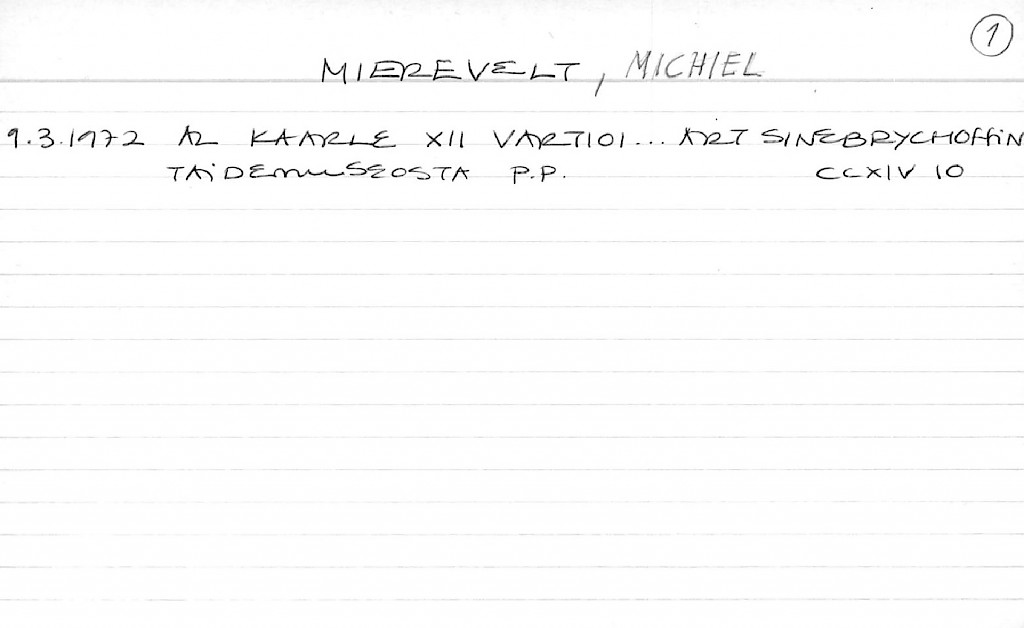 1
MIEREVELT, MICHIEL
9.3.1972 AL KAARLE XII VARTIOI... ART SINEBRYCHOFFIN
TAIDEMUSEOSTA P.P. CCXIV 10